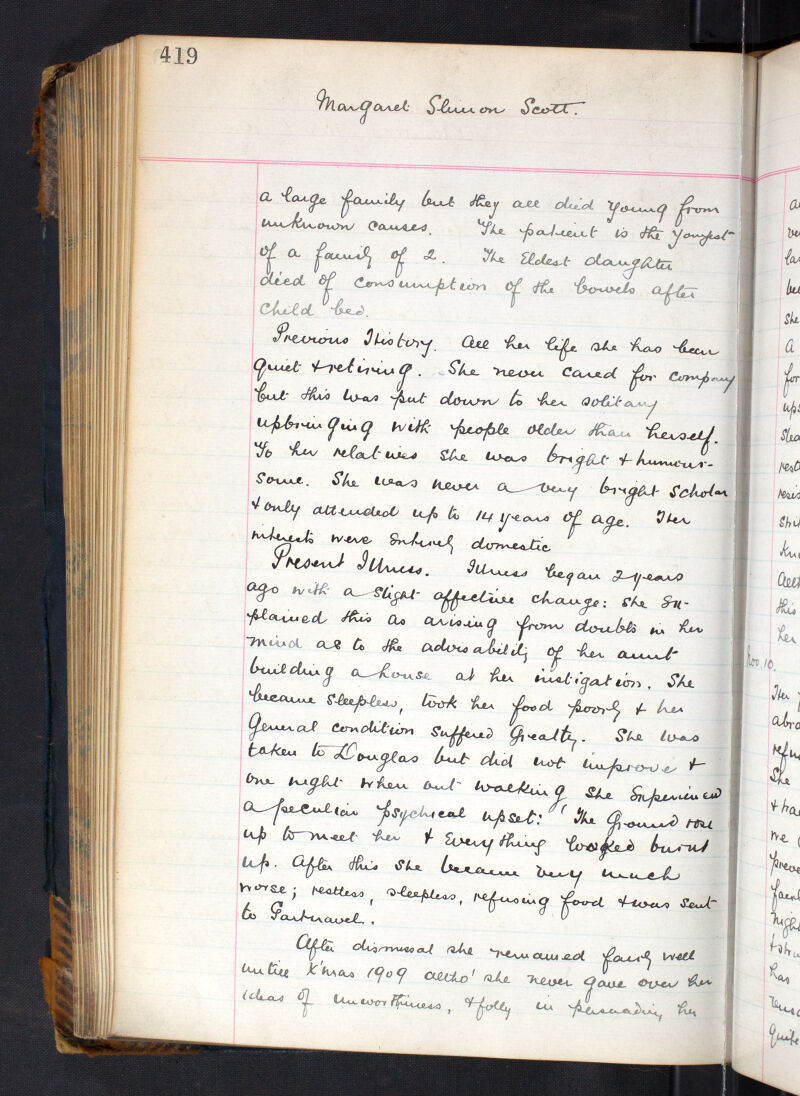 419
Margaret Slimon Scott.
a large family but they all died young from
unknown causes. The patient is the youngest
of a family of 2. The Eldest daughter
died of consumption of the bowels after
child bed.
Previous History. All her life she has been
quiet & retiring. She never cared for company
but this was put down to her solitary
upbringing with people older than herself.
To her relatives she was bright & humour-
some. She was never a very bright scholar
& only attended up to 14 years of age. Her
interests were entirely domestic
Present Illness. Illness began 2 years
ago with a slight affective change: she ex-
plained this as arising from doubts in her
mind as to the advisability of her aunt
building a house at her instigation. She
became sleepless, took her food poorly & her
General condition suffered greatly. She was
taken to Douglas but did not improve &
one night when out walking she experienced
a peculiar psychical upset: 'The Ground rose
up to meet her & Everything looked burnt
up. After this she became very much
worse; restless, sleepless, refusing food & was sent
to Gartnavel.
After dismissal she remained fairly well
untill X'mas 1909 altho' she never gave over her
ideas of unworthiness, & folly in persuading her
Nov. 10.
She
A
for
ups
rest
resis
this
her
Her
abro
refu
She
we
preve
has
quite